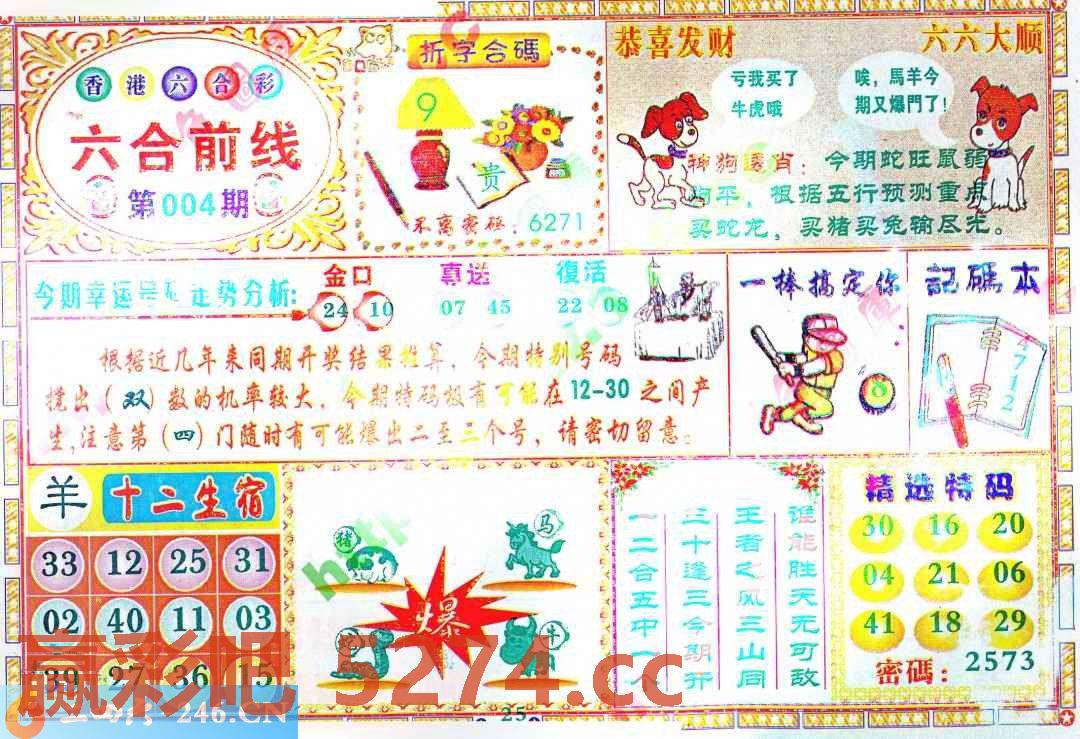 香港六合彩
六合前线
第004期
折字合碼
9
贵
不离密码：6271
恭喜发财
六六大顺
亏我买了
牛虎哦
唉，馬羊今
期又爆門了!
神狗透肖：今期蛇旺鼠
平，根据五行预测重点
买蛇龙，买猪买兔输尽光。
今期幸运号码走势分析:
金口
24 10
真送
07 45
復活
22 08
根据近几年来同期开奖结果推算，今期特别号码
搅出（双）数的机率较大，今期特码极有可能在12-30之间产
生,注意第（四）门随时有可能爆出二至三个号，请密切留意。
一棒搞定你
8
記碼本
4712
羊
十二生宿
33 12 25 31
02 40 11 03
39 27 36 15
猪
马
爆
牛
25
谁能胜天无可敌
王者之风三山同
三十逢三今期开
一二合五中一个
精选特码
30 16 20
04 21 06
41 18 29
密碼：2573
赢彩吧 5274.cc
246.CN